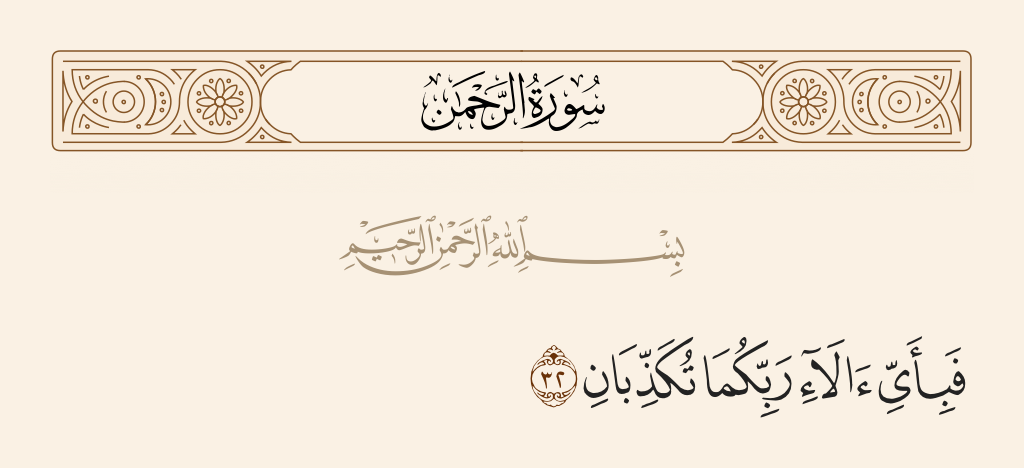 سُورَةُ الرَّحْمَٰن
بِسْمِ ٱللَّهِ ٱلرَّحْمَٰنِ ٱلرَّحِيمِ
فَبِأَىِّ ءَالَآءِ رَبِّكُمَا تُكَذِّبَانِ ٣٢